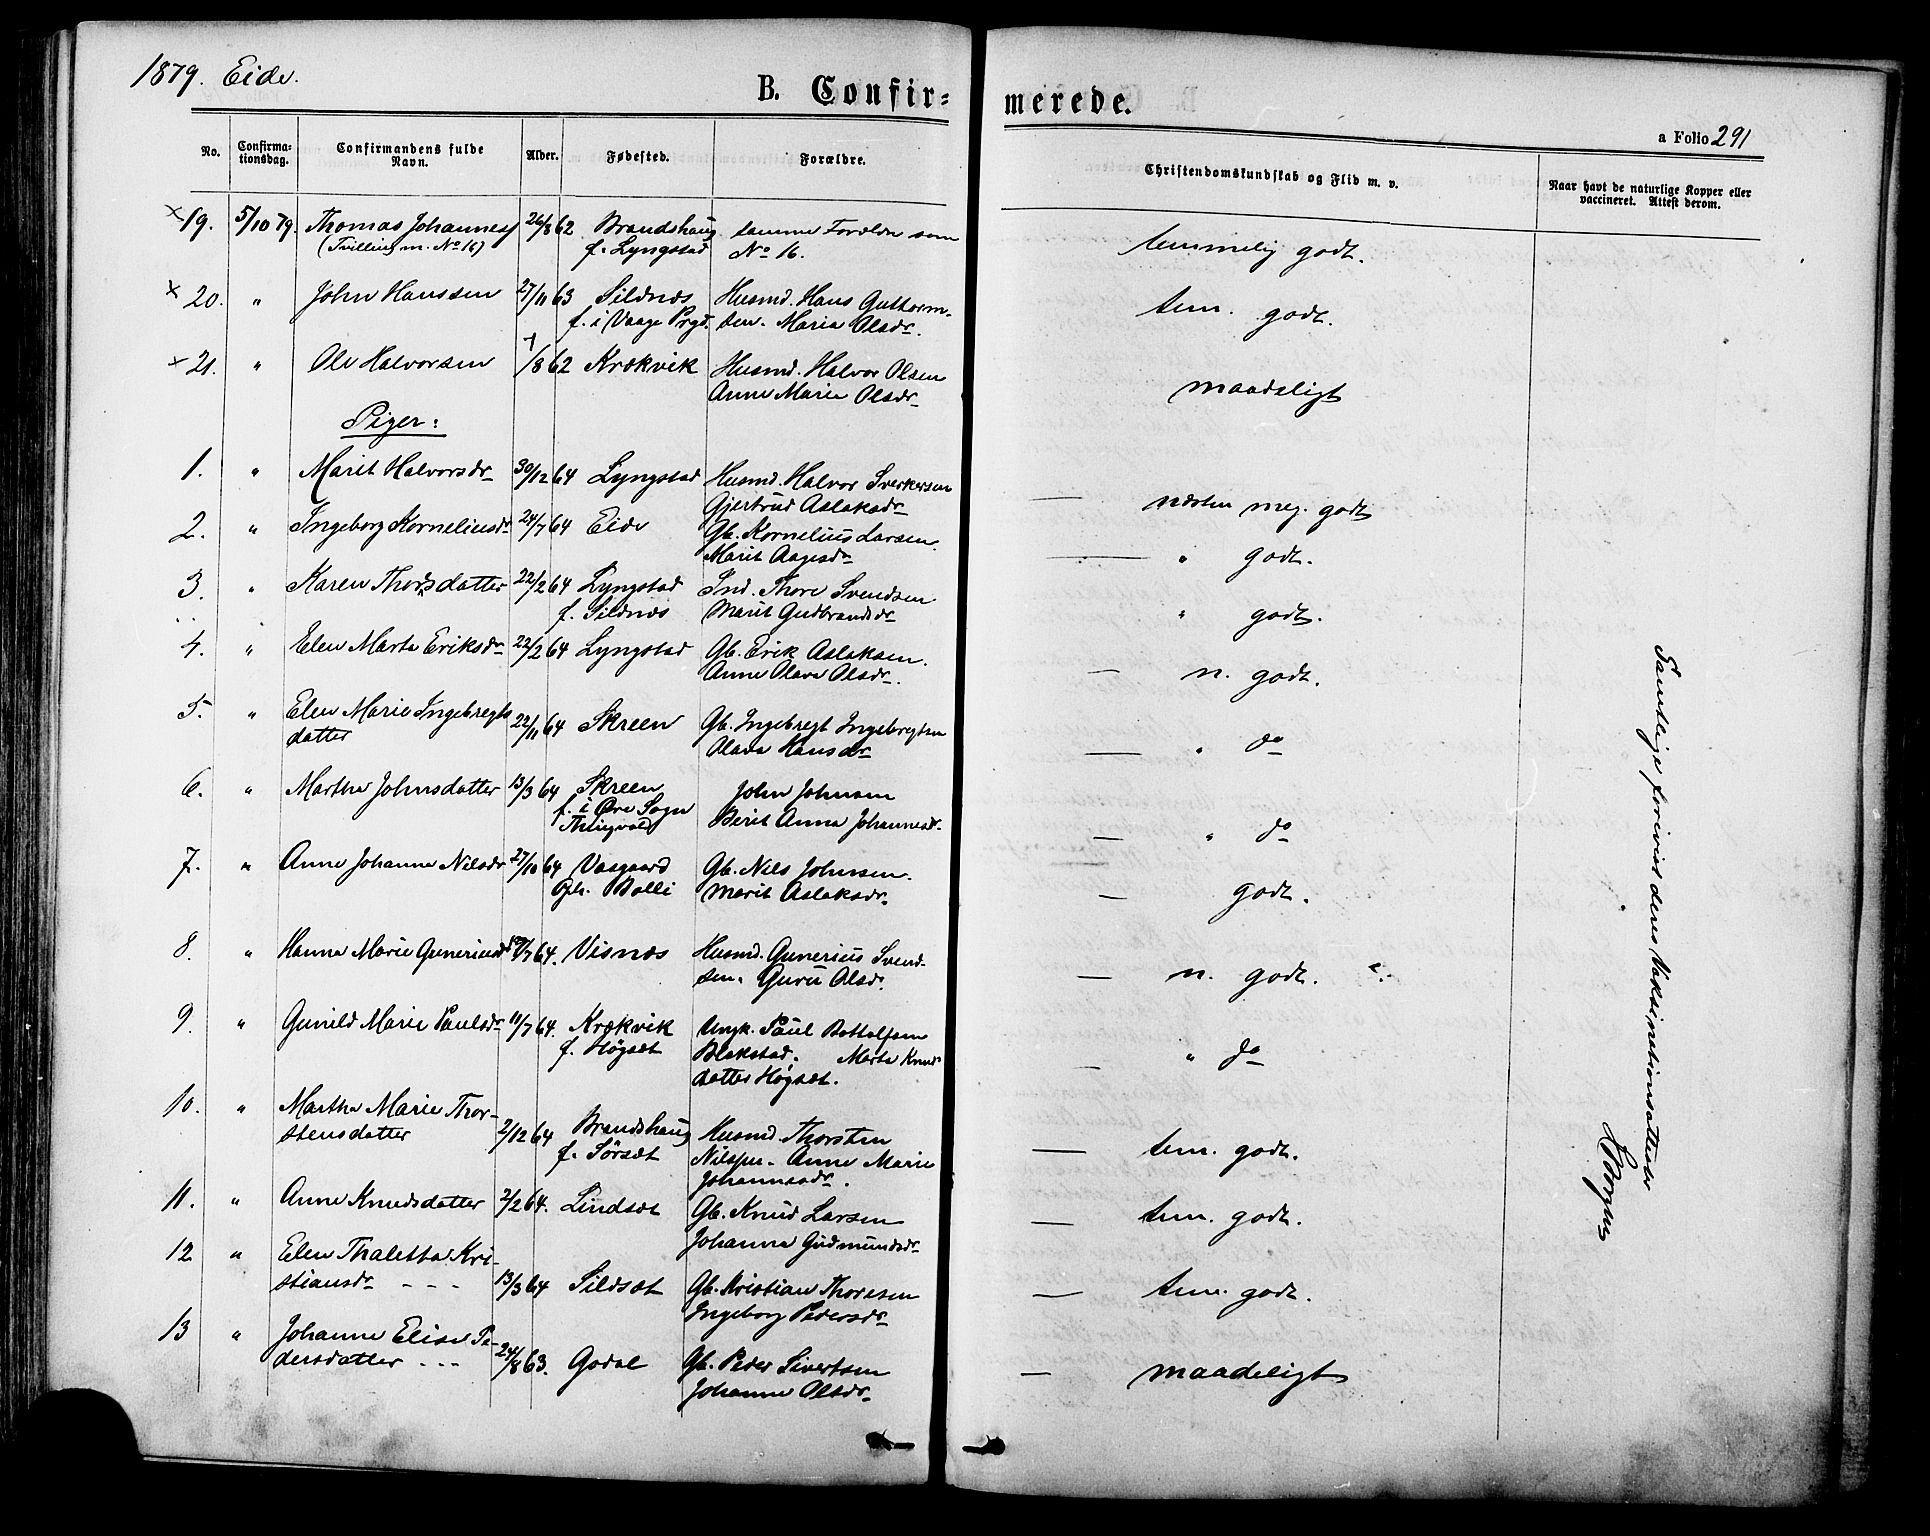 1879. Eide.
B. Confir=
merede.
a Folio 291
No.
Confirma-
tionsdag.
Confirmandens fulde
Navn.
Alder.
Fødested.
Forældre.
Christendomskundskab og Flid m. v.
Naar havt de naturlige Kopper eller
vaccineret. Attest derom.
x 19. 5/10 79. Thomas Johannes 26/8 62 Brandshaug samme Forældre som
(Tvilling m. No 16) f. Lyngstad No 16.
temmelig godt.
x 20. " John Hanssen 27/11 63 Sildnæs Husmd. Hans Guttorm-
f. i Vaage Prgd. sen. Maria Olsdr.
tem. godt.
x 21. " Ole Halvorsen /8 62 Krækvik Husmd. Halvor Olsen
Anne Marie Olsdr
maadeligt
Piger:
1. " Marit Halvorsdr 30/12 64 Lyngstad Husmd. Halvor Sverkersen
Gjertrud Aslaksdr
— næsten meg. godt
2. " Ingeborg Korneliusdr 24/7 64 Eide Gb. Kornelius Larsen.
Marit Aagesdr
— " godt.
3. " Karen Thoresdatter 22/2 64 Lyngstad Ind. Thore Svendsen
f. Sildnæs Marit Gudbrandsdr
" godt.
4. " Elen Marta Eriksdr 22/2 64 Lyngstad Gb. Erik Aslaksen.
Anne Olava Olsdr.
— n. godt.
5. " Elen Marie Ingebregts 22/11 64 Skreen Gb. Ingebregt Ingebregtsen
datter Olava Hansdr
— " do
6. " Martha Johnsdatter 13/3 64 Skreen John Johnsen
f. i Øre Sogn Berit Anna Johannesdr.
Thingvold
— " do
7. " Anne Johanne Nilsdr 27/10 64 Vasgaard Gb. Nils Johnsen.
Bolli Marit Aslaksdr.
— godt.
8. " Hanna Marie Guneriusdr /7 64. Visnæs Husmd. Gunerius Svend-
sen. Guru Olsdr.
— n. godt.
9. " Gunild Marie Paulsdr 11/7 64. Krækvik Ungk. Paul Bottolfsen
f. Høgset Blakstad. Marta Knuds
datter Høgset.
— " do
10. " Martha Marie Thor-
stensdatter 2/12 64 Brandshaug Husmd. Thorsten
f. Sörsæt Nilssen. Anne Marie
Johannesdr.
— tem. godt.
11. " Anne Knudsdatter 2/2 64. Lindsæt Gb. Knud Larsen
Johanna Gudmundsdr
— tem. godt.
12 " Elen Thaletta Kri-
stiansdr - - - 13/3 64 Sildsæt Gb. Kristian Thoresen
Ingeborg Pedersdr
— tem. godt.
13 " Johanne Elise Pe-
dersdatter - - - 24/8 63. Godal Gb. Peder Sivertsen
Johanne Olsdr
— maadeligt
Samtlige foreviste deres Vaksinationsattester